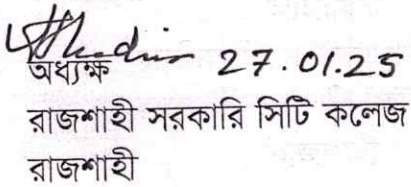 27.01.25
অধ্যক্ষ
রাজশাহী সরকারি সিটি কলেজ
রাজশাহী